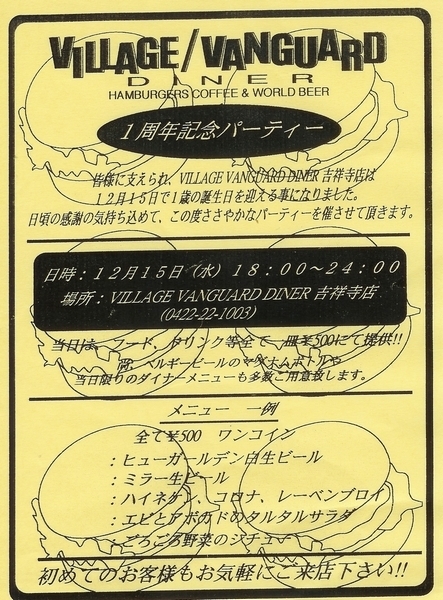 VILLAGE/VANGUARD
DINER
HAMBURGERS COFFEE & WORLD BEER
1周年記念パーティー
皆様に支えられ、VILLAGE VANGUARD DINER 吉祥寺店は
12月15日で1歳の誕生日を迎える事になりました。
日頃の感謝の気持ち込めて、この度ささやかなパーティーを催させて頂きます。
日時：12月15日（水）18：00～24：00
場所：VILLAGE VANGUARD DINER 吉祥寺店
(0422-22-1003)
当日は、フード、ドリンク等全て、一皿¥500にて提供!!
ベルギービールのマグナムボトルや
当日限りのダイナーメニューも多数ご用意致します。
メニュー 一例
全て¥500 ワンコイン
：ヒューガルデン白生ビール
：ミラー生ビール
：ハイネケン、コロナ、レーベンブロイ
：エビとアボカドのタルタルサラダ
：ごろごろ野菜のシチュー
初めてのお客様もお気軽にご来店下さい!!